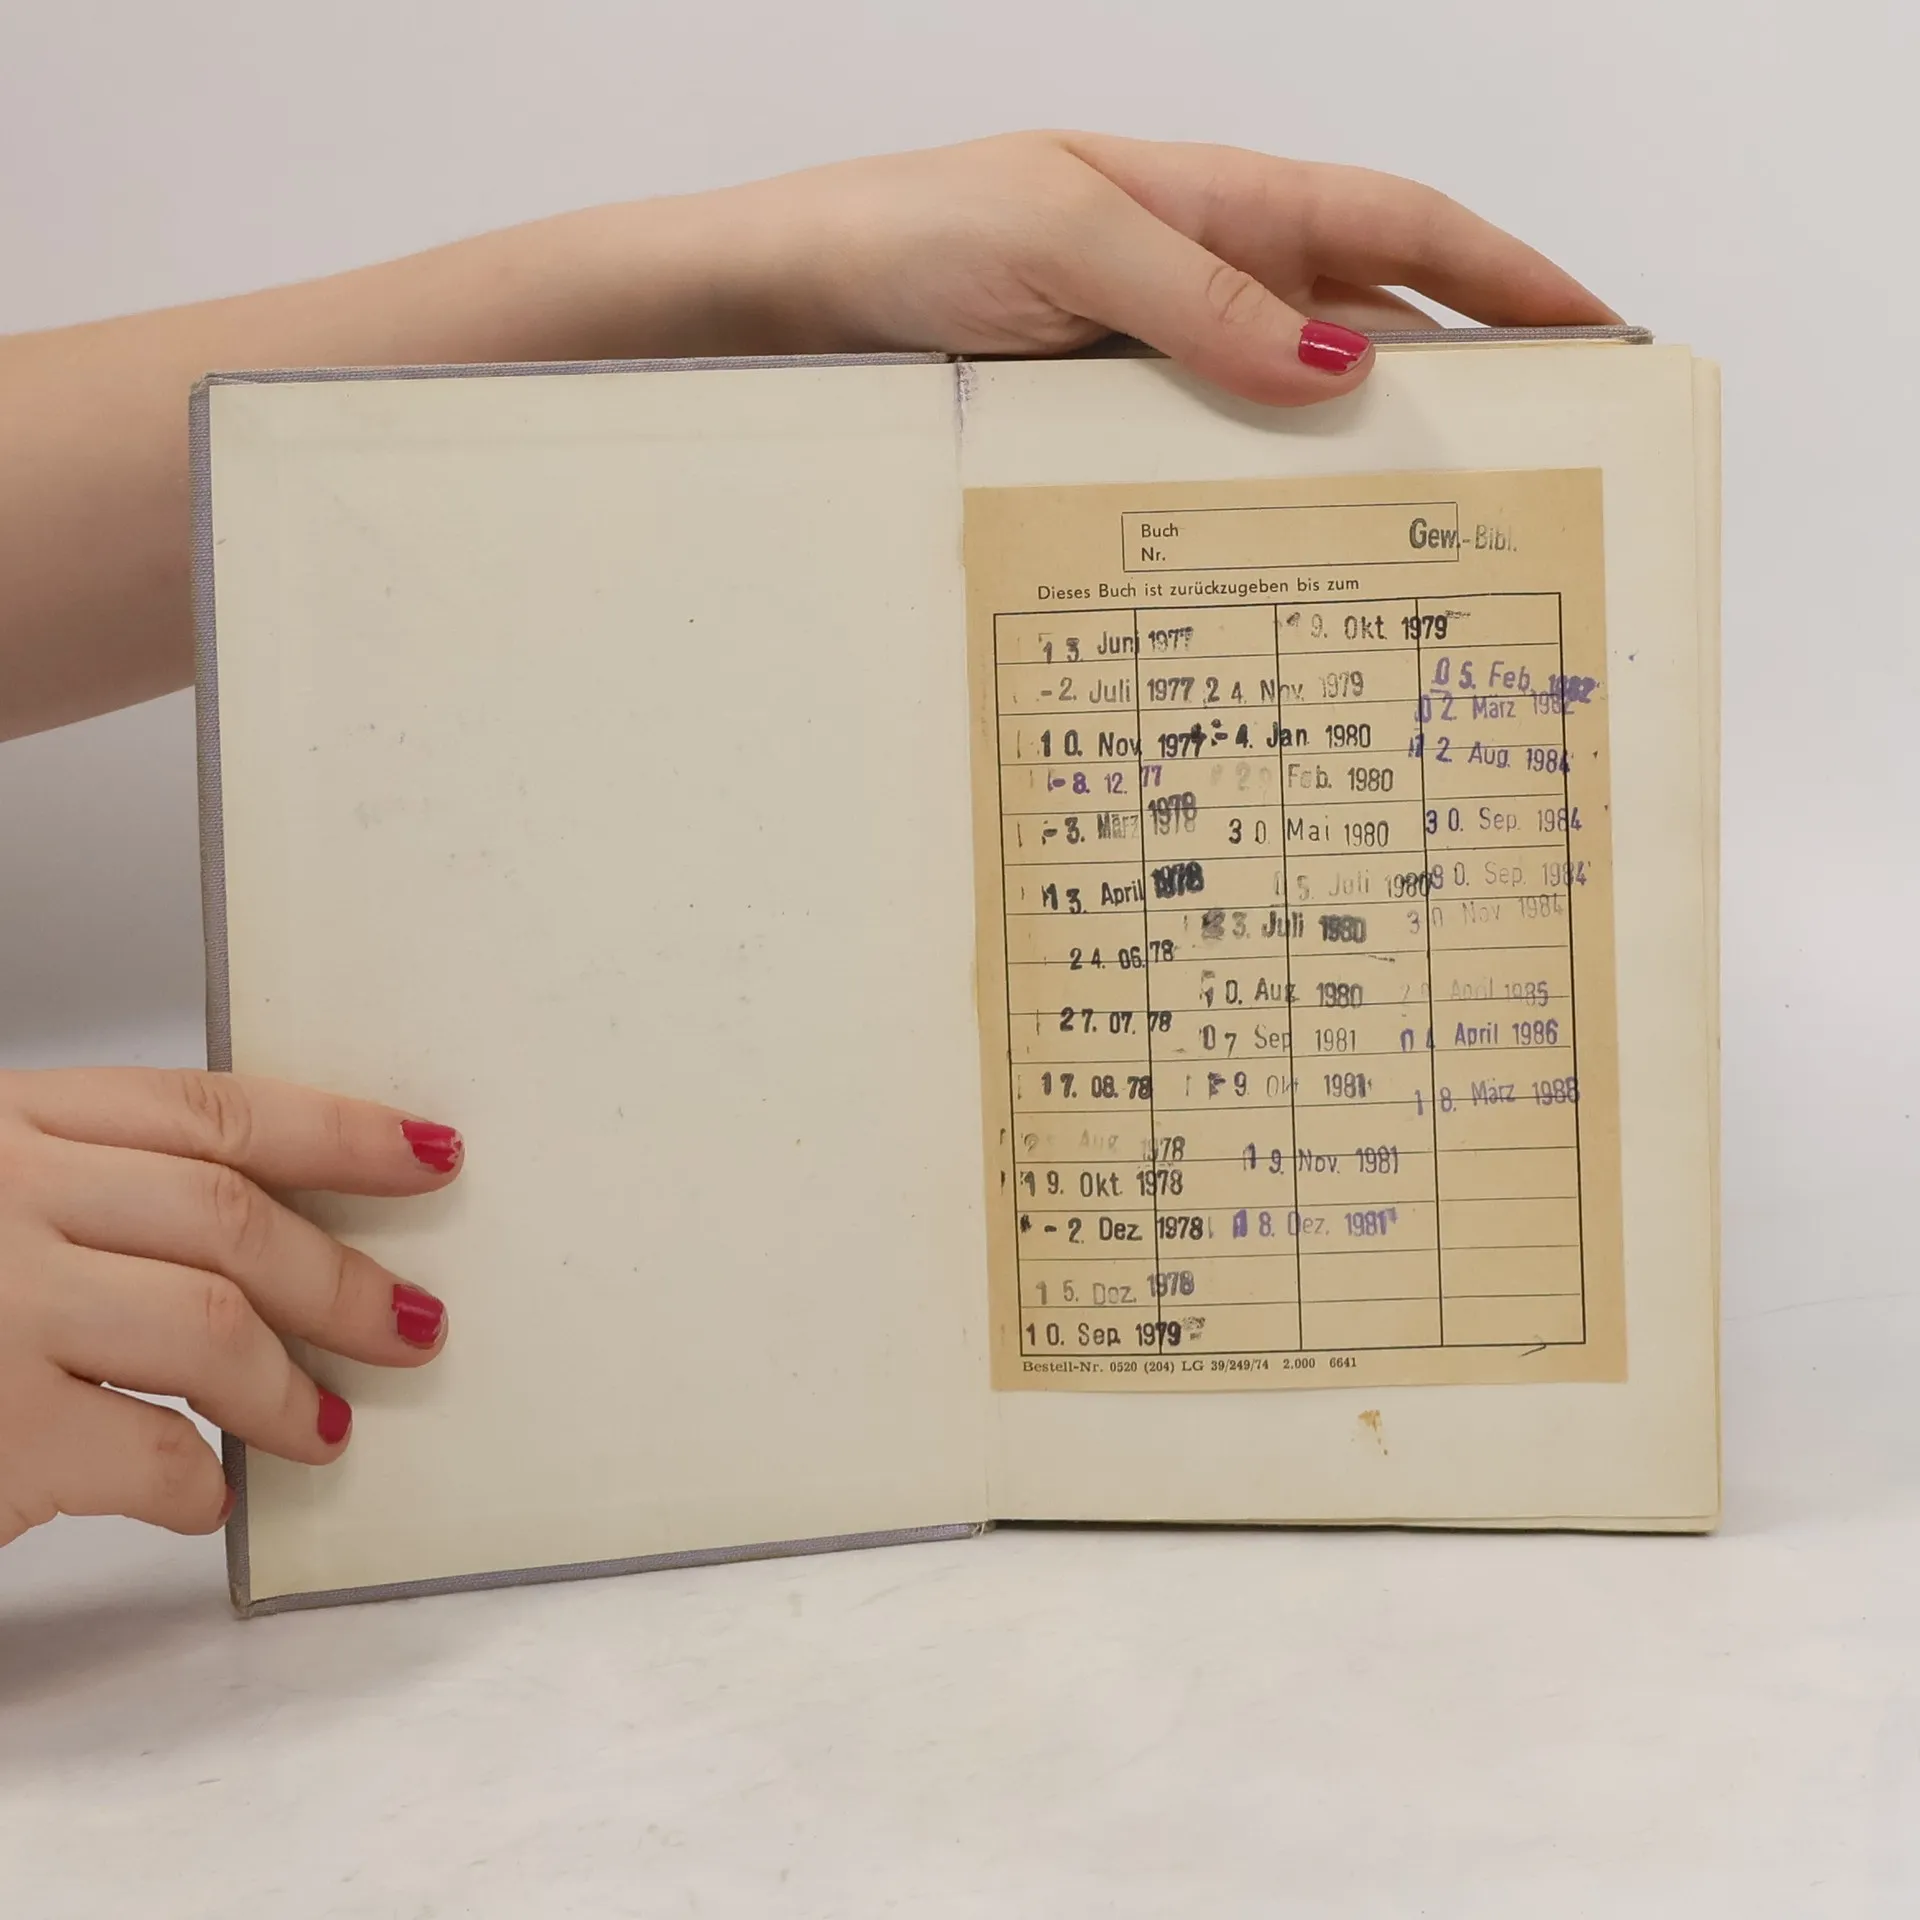 Buch
Nr.
Gew.-Bibl.
Dieses Buch ist zurückzugeben bis zum
13. Juni 1977
-2. Juli 1977
10. Nov. 1977
-8. 12. 77
-3. März 1978
13. April 1978
24. 06. 78
27. 07. 78
17. 08. 78
Aug 1978
19. Okt. 1978
-2. Dez. 1978
15. Dez. 1978
10. Sep. 1979
9. Okt. 1979
24. Nov. 1979
-4. Jan. 1980
Feb. 1980
30. Mai 1980
5. Juli 1980
3. Juli 1980
0. Aug. 1980
07 Sep 1981
-9. Okt 1981
19. Nov. 1981
18. Dez. 1981
05. Feb. 1982
02. März 1982
2. Aug. 1984
30. Sep. 1984
30. Sep. 1984
30 Nov 1984
April 1985
04 April 1986
18. März 1988
Bestell-Nr. 0520 (204) LG 39/249/74 2.000 6641